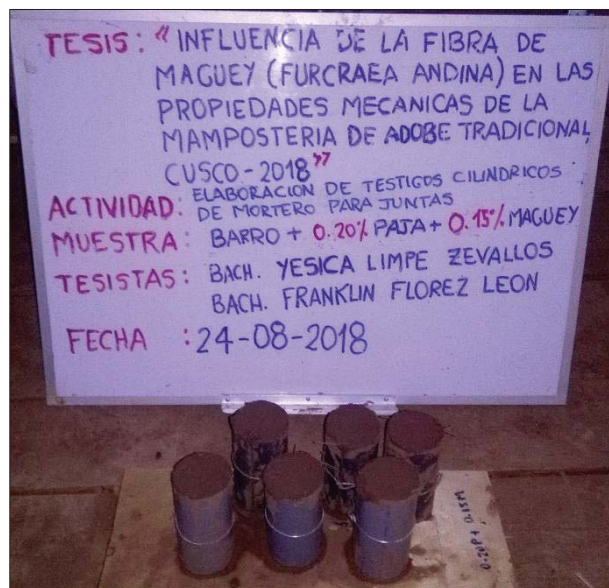 TESIS: “INFLUENCIA DE LA FIBRA DE
MAGUEY (FURCRAEA ANDINA) EN LAS
PROPIEDADES MECANICAS DE LA
MAMPOSTERIA DE ADOBE TRADICIONAL,
CUSCO-2018”
ACTIVIDAD: ELABORACION DE TESTIGOS CILINDRICOS
DE MORTERO PARA JUNTAS
MUESTRA: BARRO + 0.20% PAJA + 0.15% MAGUEY
TESISTAS: BACH. YESICA LIMPE ZEVALLOS
BACH. FRANKLIN FLOREZ LEON
FECHA : 24-08-2018
0.20P + 0.15M